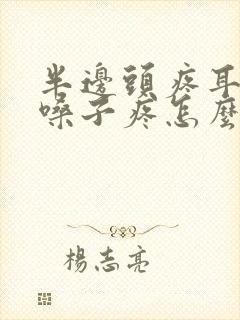 半邊頭疼耳
嗓子疼怎麼
楊志亮